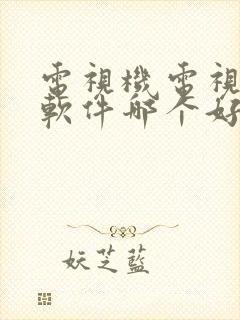 電視機電視
軟件哪个好
妖芝藍